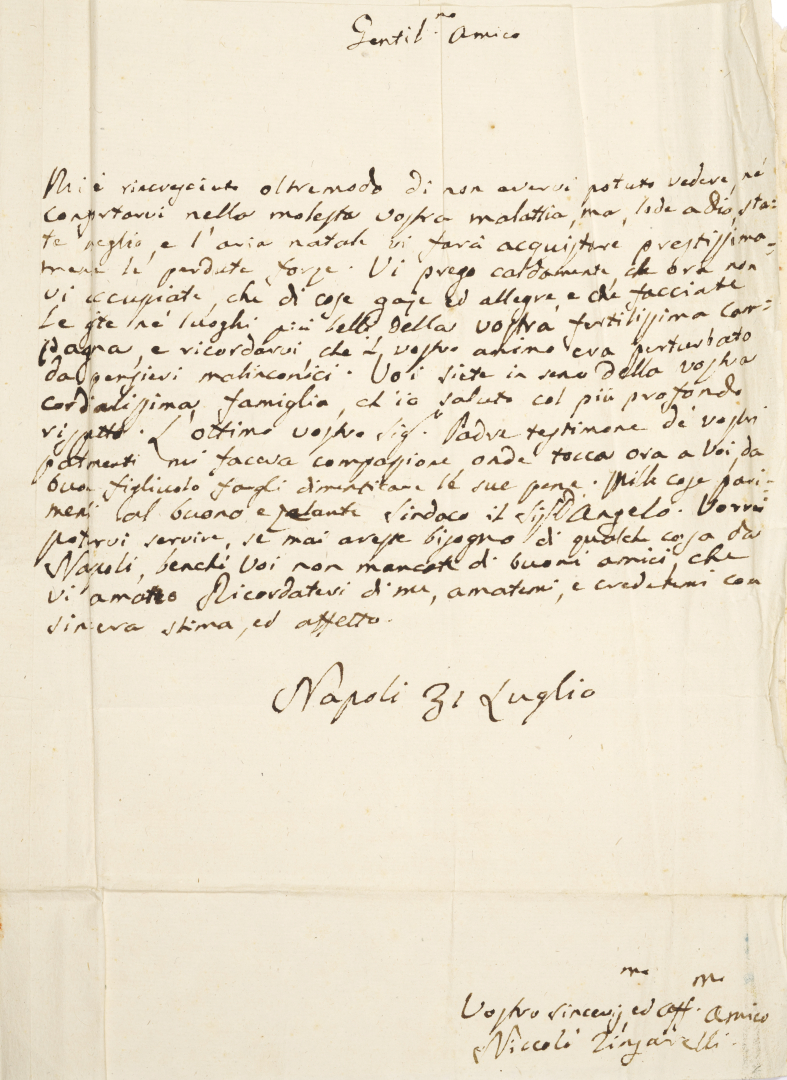 Gentil.mo Amico
Mi è rincresciuto oltremodo di non avervi potuto vedere, né
confortarvi nella molesta vostra malattia, ma, lode a Dio, sta=
te meglio, e l'aria natale vi farà acquistare prestissima=
mene le perdute forze. Vi prego caldamente che ora non
vi occupiate, che di cose gaje ed allegre, e che facciate
le gite ne' luoghi più belli della vostra fertilissima cam=
pagna, e ricordarvi, che il vostro animo era perturbato
da pensieri malinconici. Voi siete in seno della vostra
cordialissima famiglia, ch'io saluto col più profondo
rispetto. L'ottimo vostro Sig.r Padre testimone de' vostri
patimenti mi faceva compassione onde tocca ora a Voi, da
buon figliuolo fargli dimenticare le sue pene. Mille cose pari=
menti al buono e zelante Sindaco il Sig. D. Angelo. Vorrei
potervi servire, se mai aveste bisogno di qualche cosa da
Napoli, benchè Voi non mancate di buoni amici, che
vi amano Ricordatevi di me, amatemi, e credetemi con
sincera stima, ed affetto.
Napoli 31 Luglio
Vostro sinceris.mo ed aff.mo Amico
Niccolò Zingarelli.